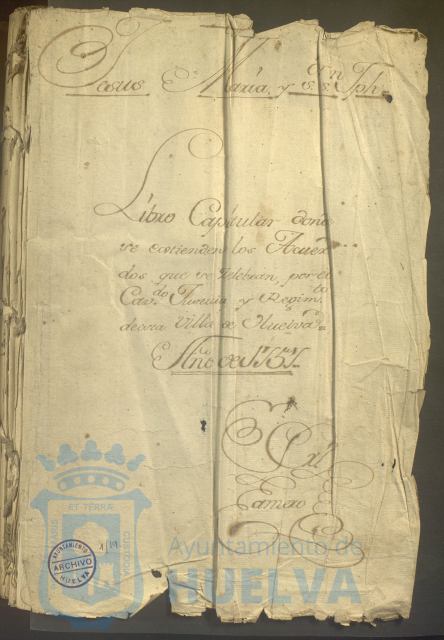 Jesus Maria, y Sn. Jph.
Libro Capitular donde
se extienden los Acuer
dos que se zelebran, por el
Cavdo. Justicia y Regimto.
de esta Villa de Huelva
Año de 1757
Gil
Romero
ET TERRÆ
CUSTODIA
AYUNTAMIENTO
ARCHIVO
HUELVA
Ayuntamiento de
HUELVA